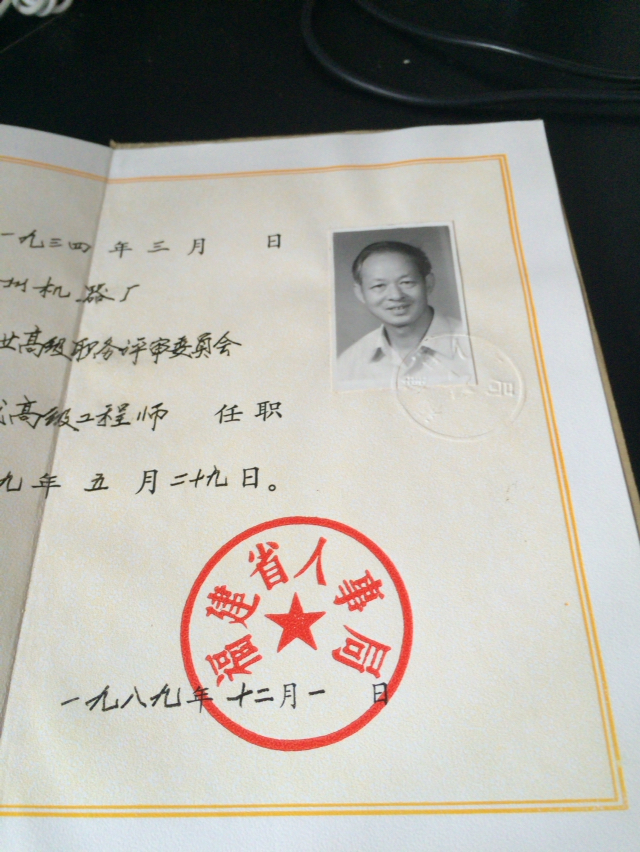 一九三四 年 三 月 日
州机器厂
业高级职务评审委员会
高级工程师 任职
九 年 五 月 二十九日。
福建省人事局
一九八九年 十二月 一 日